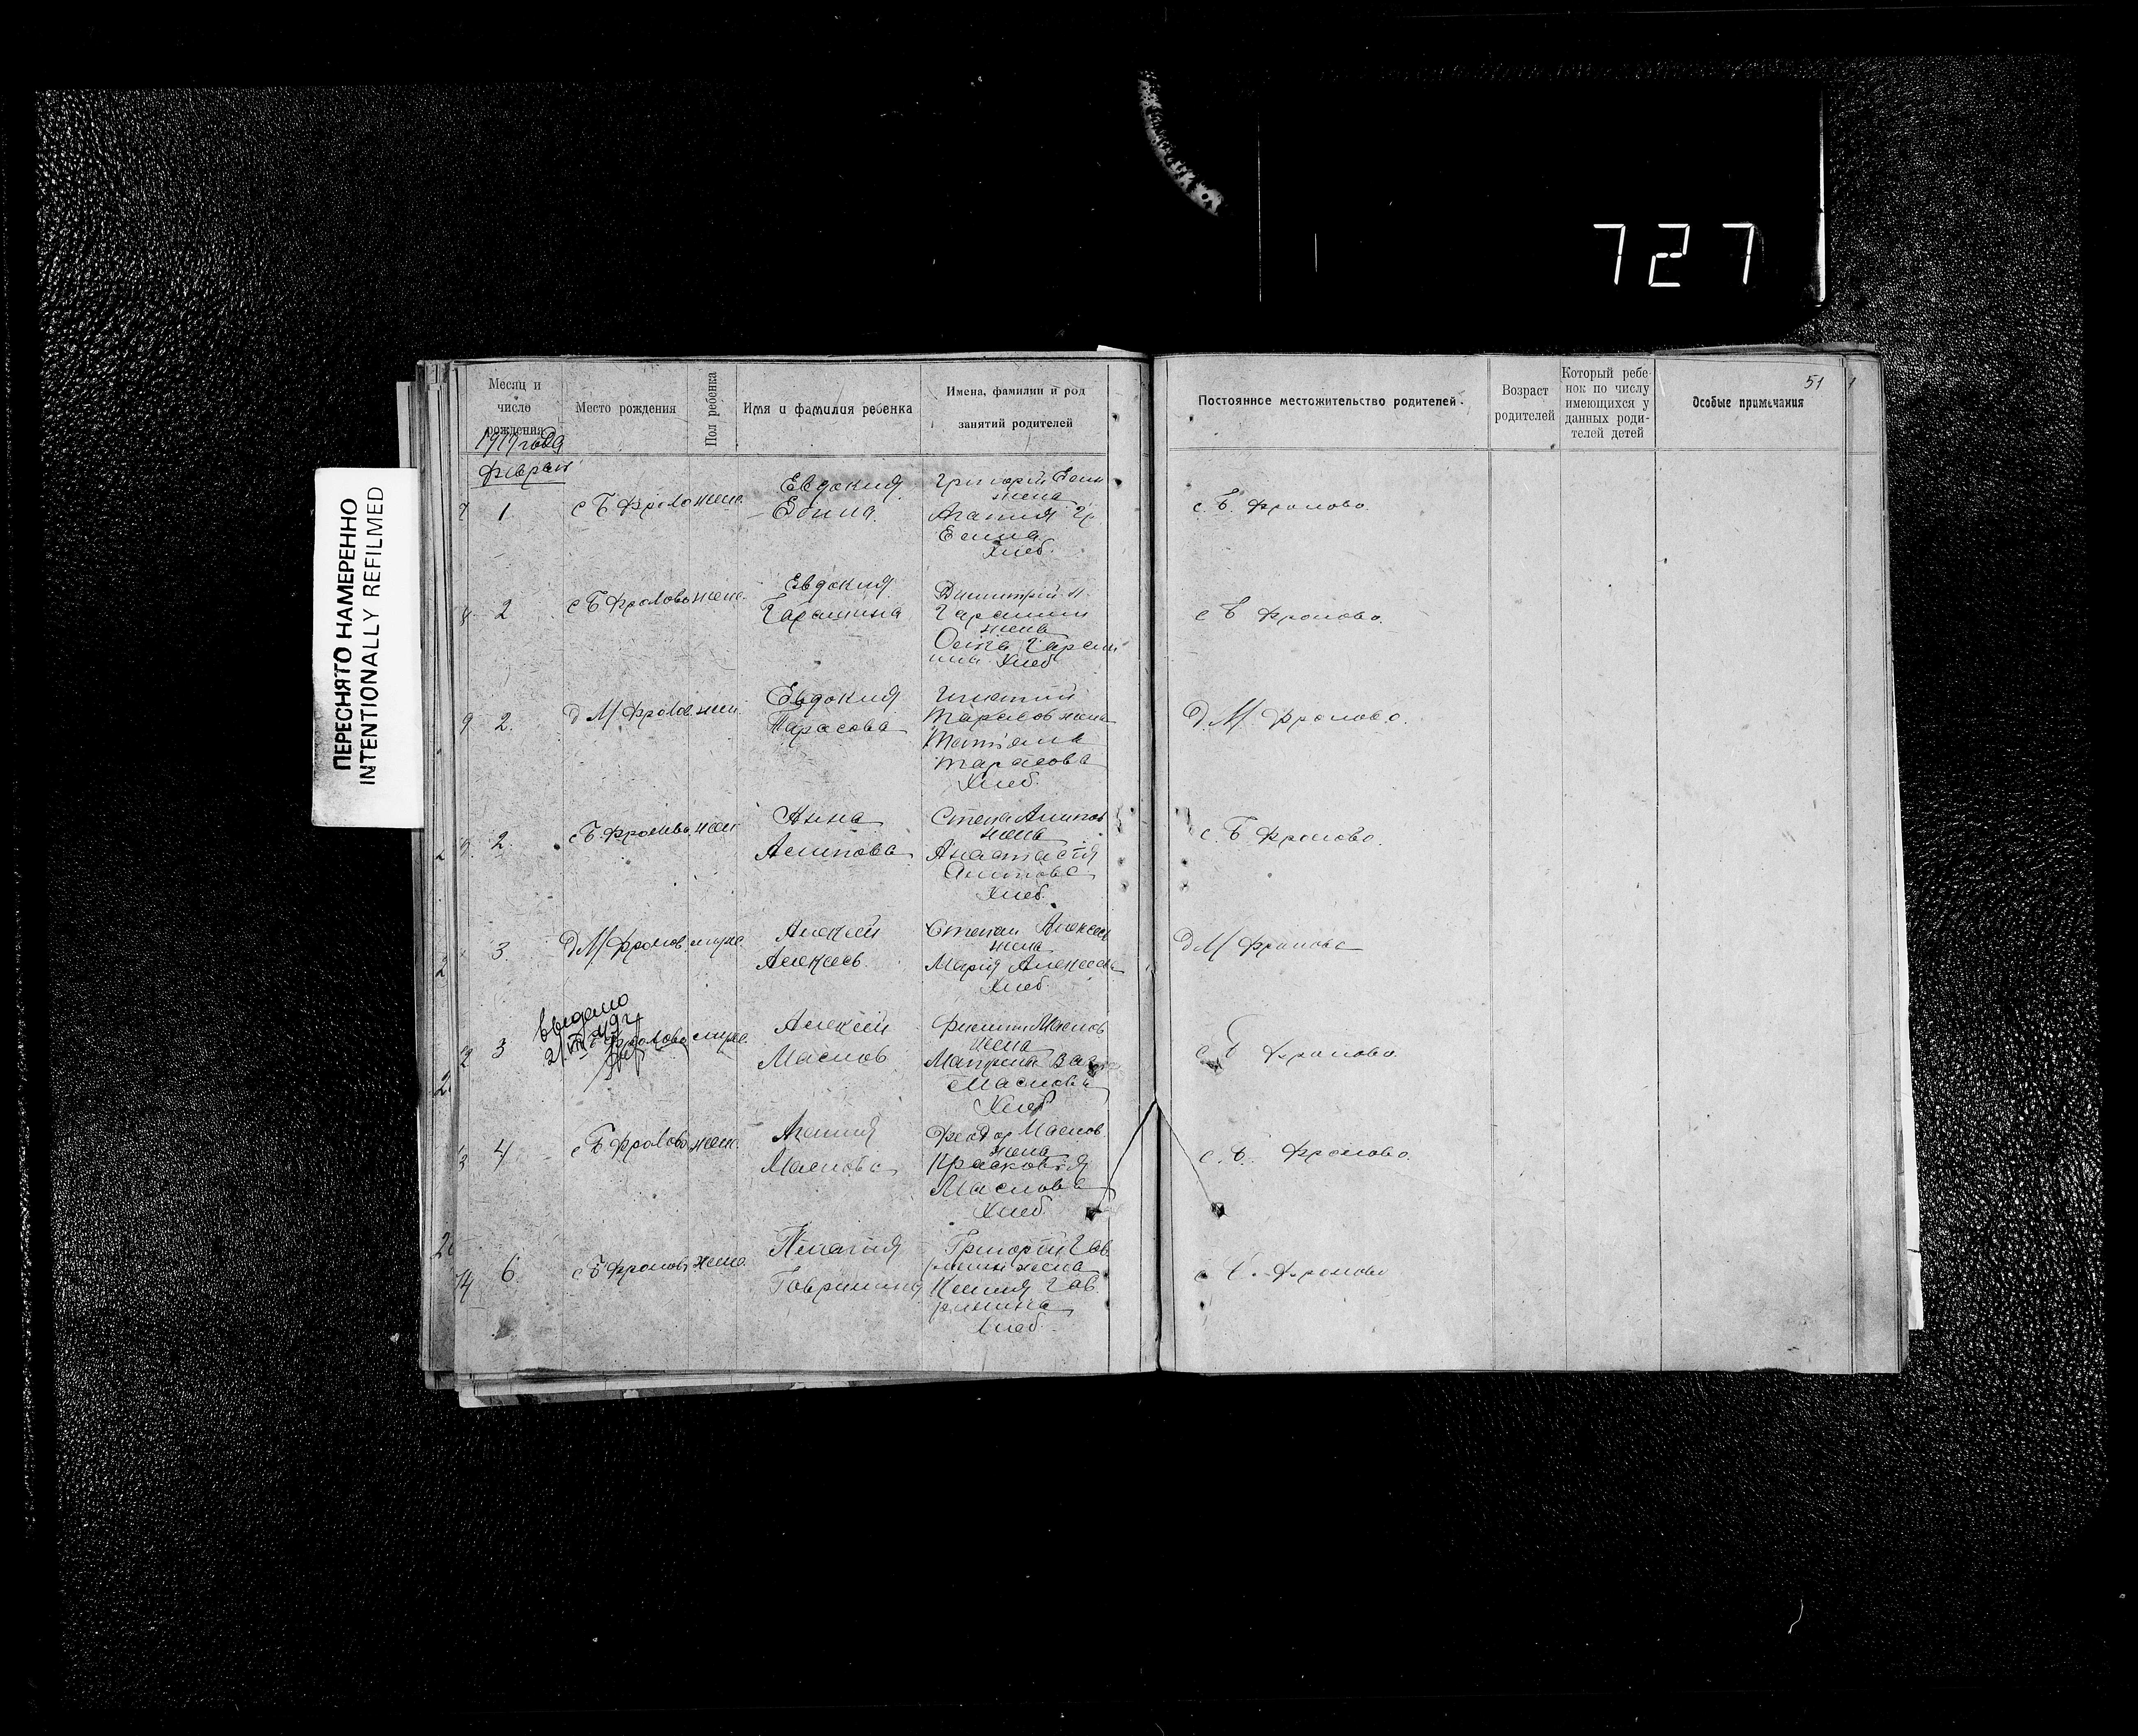 727
ПЕРЕСНЯТО НАМЕРЕННО
INTENTIONALLY REFILMED
Месяц и
число
рождения
Место рождения
Пол ребенка
Имя и фамилия ребенка
Имена, фамилии и род
занятий родителей
Постоянное местожительство родителей.
Возраст
родителей
Который ребе-
нок по числу
имеющихся у
данных роди-
телей детей
Особые примечания
51
1919 года
Феврал
1
Евдокия
Есина
жена
Агапия
Есина
Хлеб.
с. Б. Фролово.
2
с Б Фролово жен.
Евдокия
Гарашина
Димитрий
жена
Хлеб
с Б Фролово.
9
2.
д М Фролов жен.
Евдокия
Тарасова
Тарасов жена
Татиана
Тарасова
Хлеб.
Д. М. Фролово.
2.
с Б. Фролово жен
Анна
Асипова
жена
Анастасія
Хлеб.
с. Б Фролово.
3.
Д М Фролов муж.
Алексей
Алексеев.
Степан
жена
Мария
Хлеб
Д М Фролово
выдано
3
Фролово муж.
Алексей
Маслов
Филипп Маслов
жена
Маслова
Хлеб
с Б Фролово
4
с Б Фролово жен.
Агапия
Маслова
Феодор Маслов
жена
Прасковия
Маслова
Хлеб
с. Б. Фролово.
14
6
с Б Фролов жен.
Пелагия
Гаврилина
Григорий Гав
рилин жена
Ксения Гав
рилина
Хлеб.
с Б. Фролово